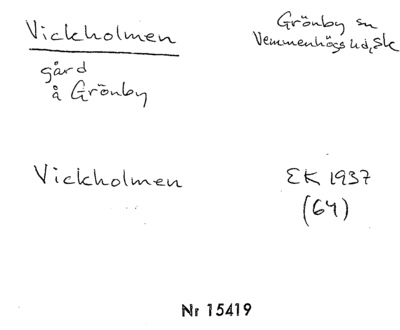 Vickholmen
Grönby sn
Vemmenhögs hd, Sk
gård
å Grönby
Vickholmen
EK 1937
(64)
Nr 15419